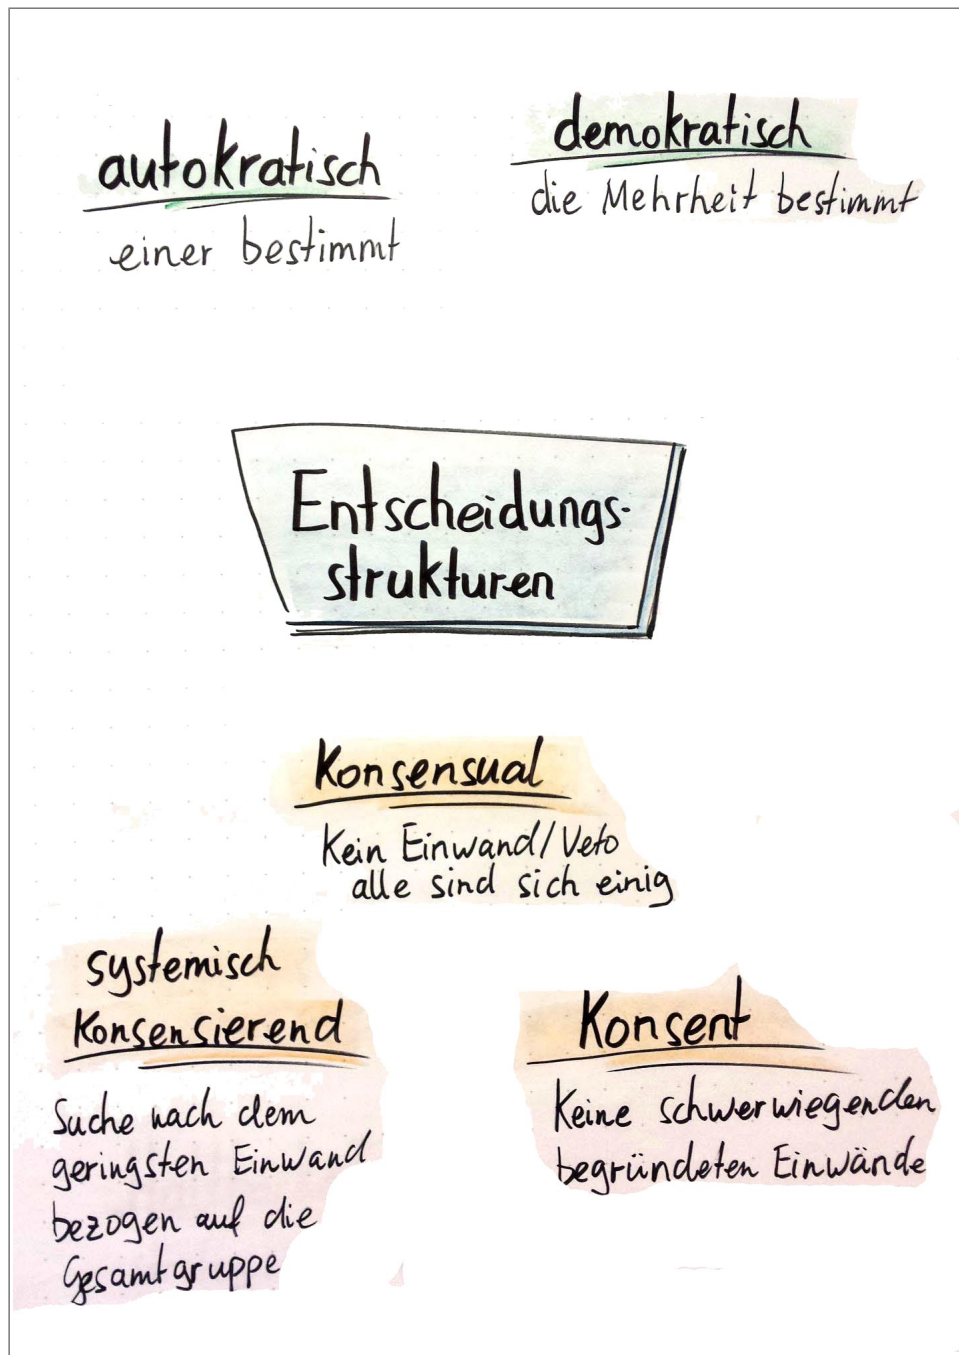 autokratisch
einer bestimmt
demokratisch
die Mehrheit bestimmt
Entscheidungs-
strukturen
Konsensual
Kein Einwand/Veto
alle sind sich einig
systemisch
Konsensierend
Suche nach dem
geringsten Einwand
bezogen auf die
Gesamtgruppe
Konsent
Keine schwerwiegenden
begründeten Einwände